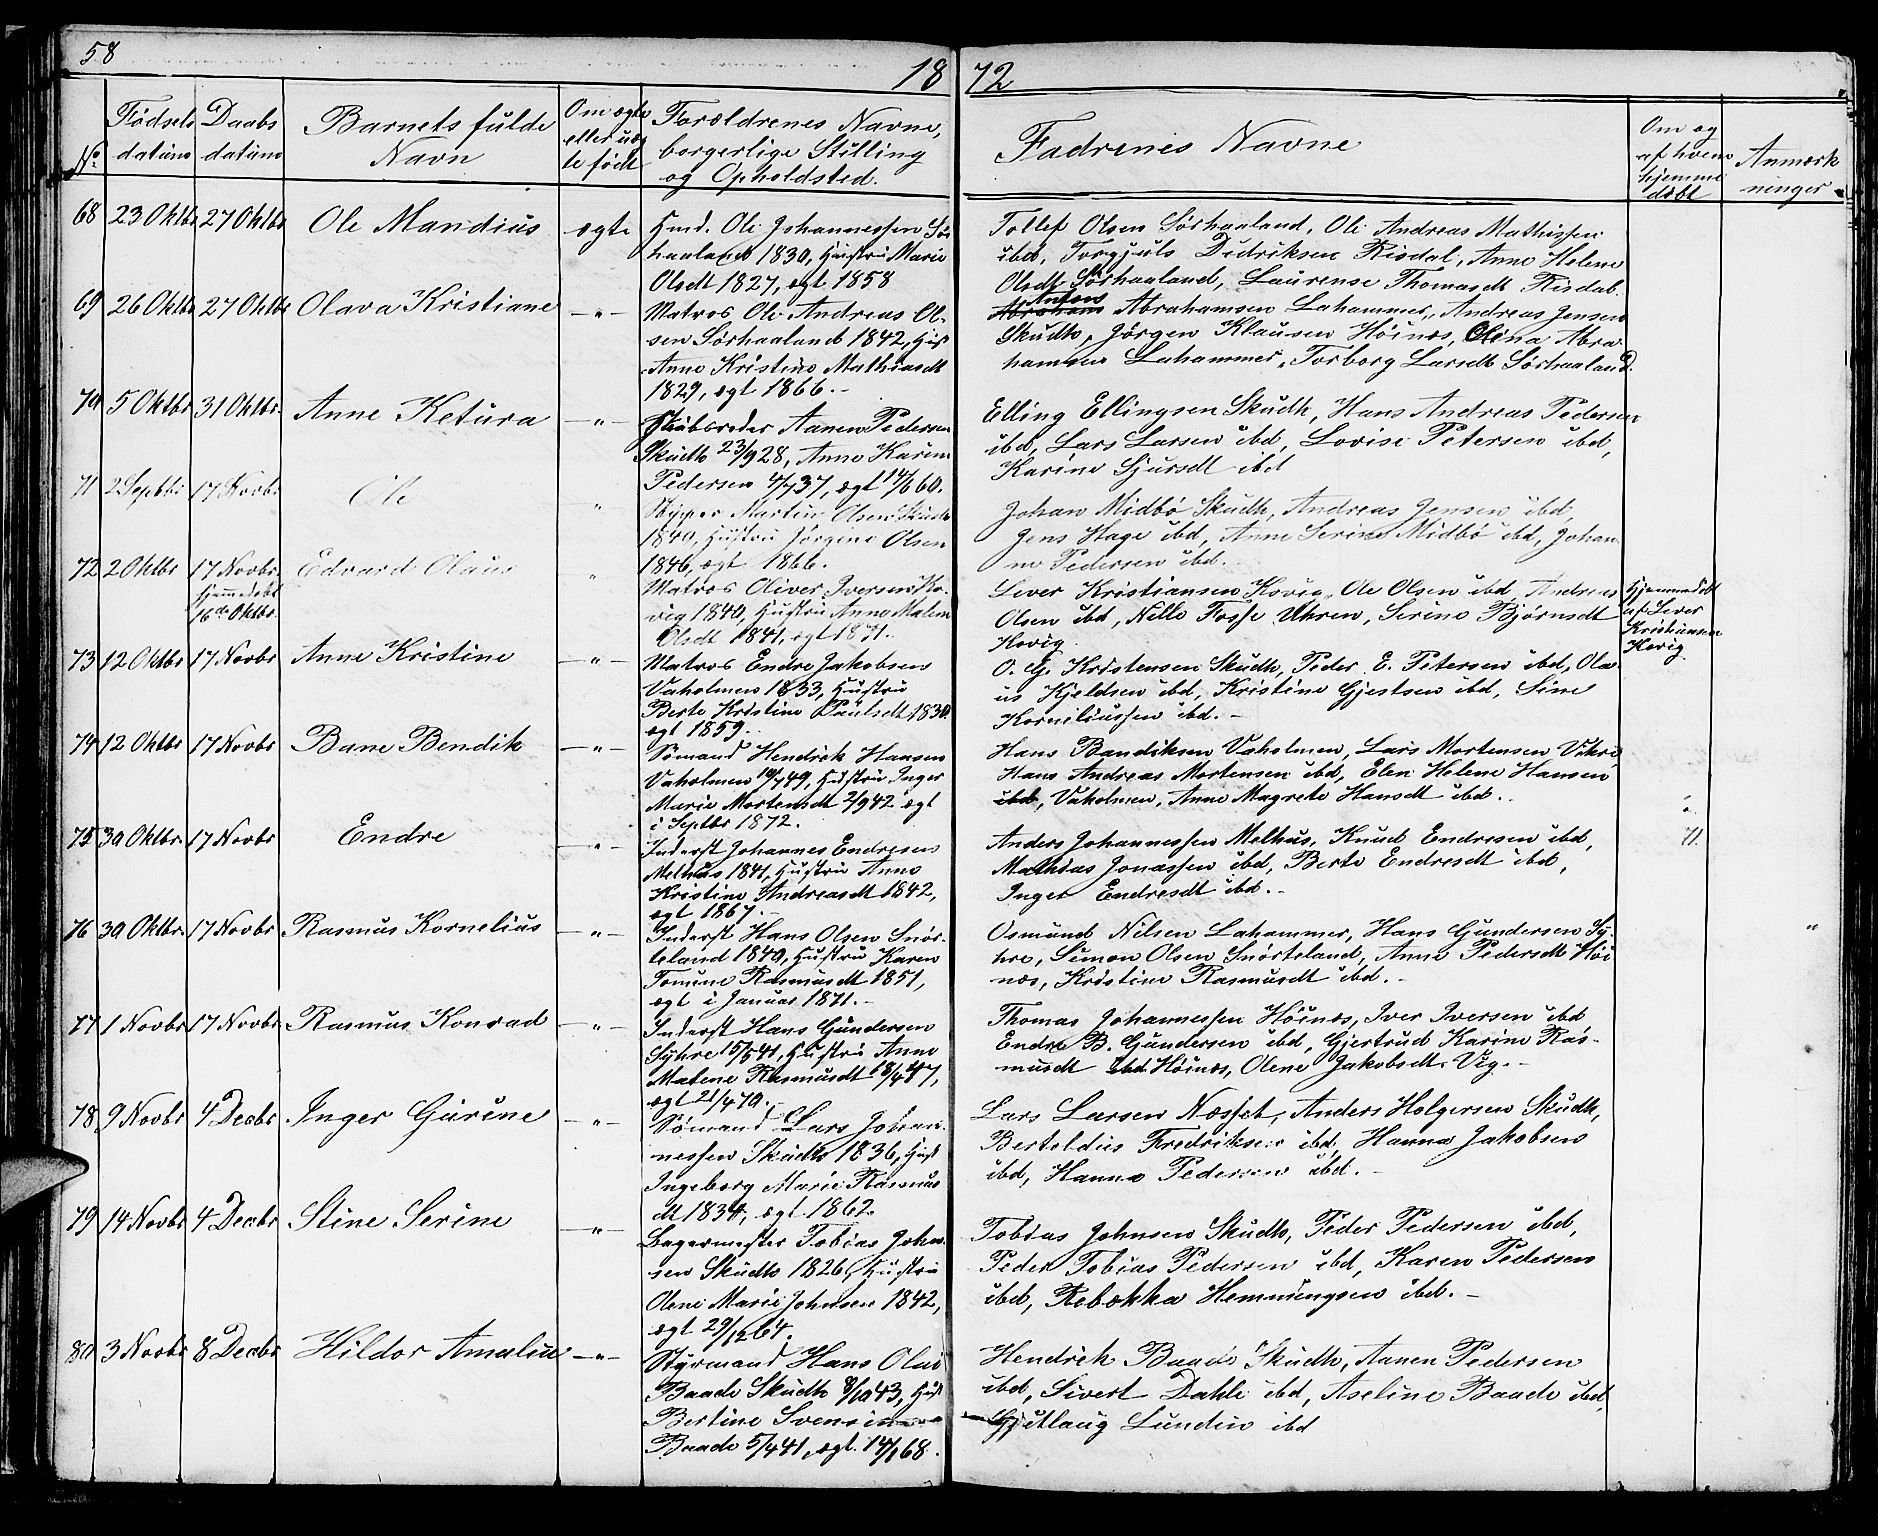 58
18 72
No.
Fødsels
datum
Daabs
datum
Barnets fulde
Navn
Om ægte
eller uæg
te født
Forældrenes Navne,
borgerlige Stilling
og Opholdsted.
Fadrenes Navne
Om og
af hvem
hjemme
døbt
Anmærk
ninger
68 23 Oktbr 27 Oktbr Ole Mandius ægte
Husmd. Ole Johannessen Sør
haaland 1830, Hustru Marie
Olsdt 1827, ægt 1858
Tollef Olsen Sørhaaland, Ole Andreas Mathissen
ibd, Torgjuls Didriksen Risdal, Anne Helene
Olsdt Sørhaaland, Laurense Thomasdt Risdal.
69 26 Oktbr 27 Oktbr Olava Kristiane -"-
Matros Ole Andreas Ol-
sen Sørhaaland 1842, Hust
Anne Kristine Mathiasdt
1829, ægt 1866.-
Antons
Abraham Abrahamsen Lahammer, Andreas Jensen
Skudh, Jørgen Klausen Høinæs, Olina Abra
hamsen Lahammer, Torborg Larsdt Sørhaaland.
70 5 Oktbr 31 Oktbr. Anne Ketura -"-
Skibsreder Aanen Pedersen
Skudh 23/9 28, Anne Karine
Pedersen 4/7 37, ægt 14/6 60.
Elling Ellingsen Skudh, Hans Andreas Pedersen
ibd, Lars Larsen ibd, Lovise Petersen ibd,
Karine Sjursdt ibd
71 2 Septbr 17 Novbr Ole "
Skipper Martin Olsen Skudh
1840, Hustru Jørgine Olsen
1846, ægt 1866.
Johan Midbø Skudh, Andreas Jensen ibd,
Jens Hage ibd, Anne Serine Midbø ibd, Johan
ne Pedersen ibd.
72 2 Oktbr 17 Novbr. Edvard Olaus "
hjemmedøbt
16de Oktbr.
Matros Oliver Iversen Ho-
vig 1840, Hustru Anne Malene
Olsdt 1841, ægt 1871.
Sever Kristiansen Hovig, Ole Olsen ibd, Andreas
Olsen ibd, Nille Tosse Uhren, Serine Bjørnsdt
Hovig.
Hjemmedøbt
af Sever
Kristiansen
Hovig
73 12 Oktbr 17 Novbr Anne Kristine -"-
Matros Endre Jakobsen
Vaholmen 1833, Hustru
Berte Kristine Paulsdt 1830
ægt 1859.
O. G. Kristensen Skudh, Peder E. Petersen ibd, Ola
us Kjeldsen ibd, Kristine Gjertsen ibd, Sine
Korneliussen ibd.-
74 12 Oktbr 17 Novbr Bane Bendik -"-
Sømand Hendrik Hansen
Vaholmen 19/7 49, Hustru Inger
Marie Mortensdt 2/9 42 ægt
i Septbr 1872.
Hans Bandiksen Vaholmen, Lars Mortensen Vikre
Hans Andreas Mortensen ibd, Elen Helene Hansen
ibd, Vaholmen, Anne Magrete Hansdt ibd.
75 30 Oktbr. 17 Novbr Endre -"-
Inderst Johannes Endresen
Melhus 1841, Hustru Anne
Kristine Andreasdt 1842,
ægt 1867.
Anders Johannessen Melhus, Knud Endresen ibd,
Mathias Jonassen ibd, Berte Endresdt ibd,
Inger Endresdt ibd.-
71.
76 30 Oktbr. 17 Novbr Rasmus Kornelius -"-
Inderst Hans Olsen Snør-
teland 1840, Hustru Karen
Tomine Rasmusdt 1851,
ægt i Januar 1871.-
Osmund Nilsen Lahammer, Hans Gundersen Sy-
hre, Simon Olsen Snørteland, Anne Pedersdt Høi
næs, Kristine Rasmusdt ibd.-
"
77 1 Novbr 17 Novbr Rasmus Konrad -"-
Inderst Hans Gundersen
Syhre 15/5 41, Hustru Anne
Malene Rasmusdt 18/4 47,
ægt 21/4 70.
Thomas Johannessen Høinæs, Iver Iversen ibd
Endre B. Gundersen ibd, Gjertrud Karine Ras-
musdt ibd Høinæs, Olene Jakobsdt Vig.-
78 9 Novbr 4 Decbr Inger Gurine -"-
Sømand Lars Johan-
nessen Skudh 1836, Hust
Ingeborg Marie Rasmus
dt 1834, ægt 1862.
Lars Larsen Næsset, Anders Holgersen Skudh,
Bertoldus Fredriksen ibd, Hanna Jakobsen
ibd, Hanna Pedersen ibd.-
79 14 Novbr 4 Decbr Stine Serine -"-
Bagermester Tobias John-
sen Skudh 1826, Hustru
Olene Marie Johnsen 1842,
ægt 29/12 64.
Tobias Johnsen Skudh, Peder Pedersen ibd,
Peder Tobias Pedersen ibd, Karen Pedersen
ibd, Rebekka Hemmingsen ibd.-
80 3 Novbr 8 Decbr Hildor Amalia -"-
Styrmand Hans Olai
Baade Skudh 8/10 43, Hust
Bertine Svensine
Baade 5/4 41, ægt. 14/1 68.
Hendrik Baade Skudh, Aanen Pedersen
ibd, Sivert Dahle ibd, Aseline Baade ibd,
Gjutlaug Lundin ibd